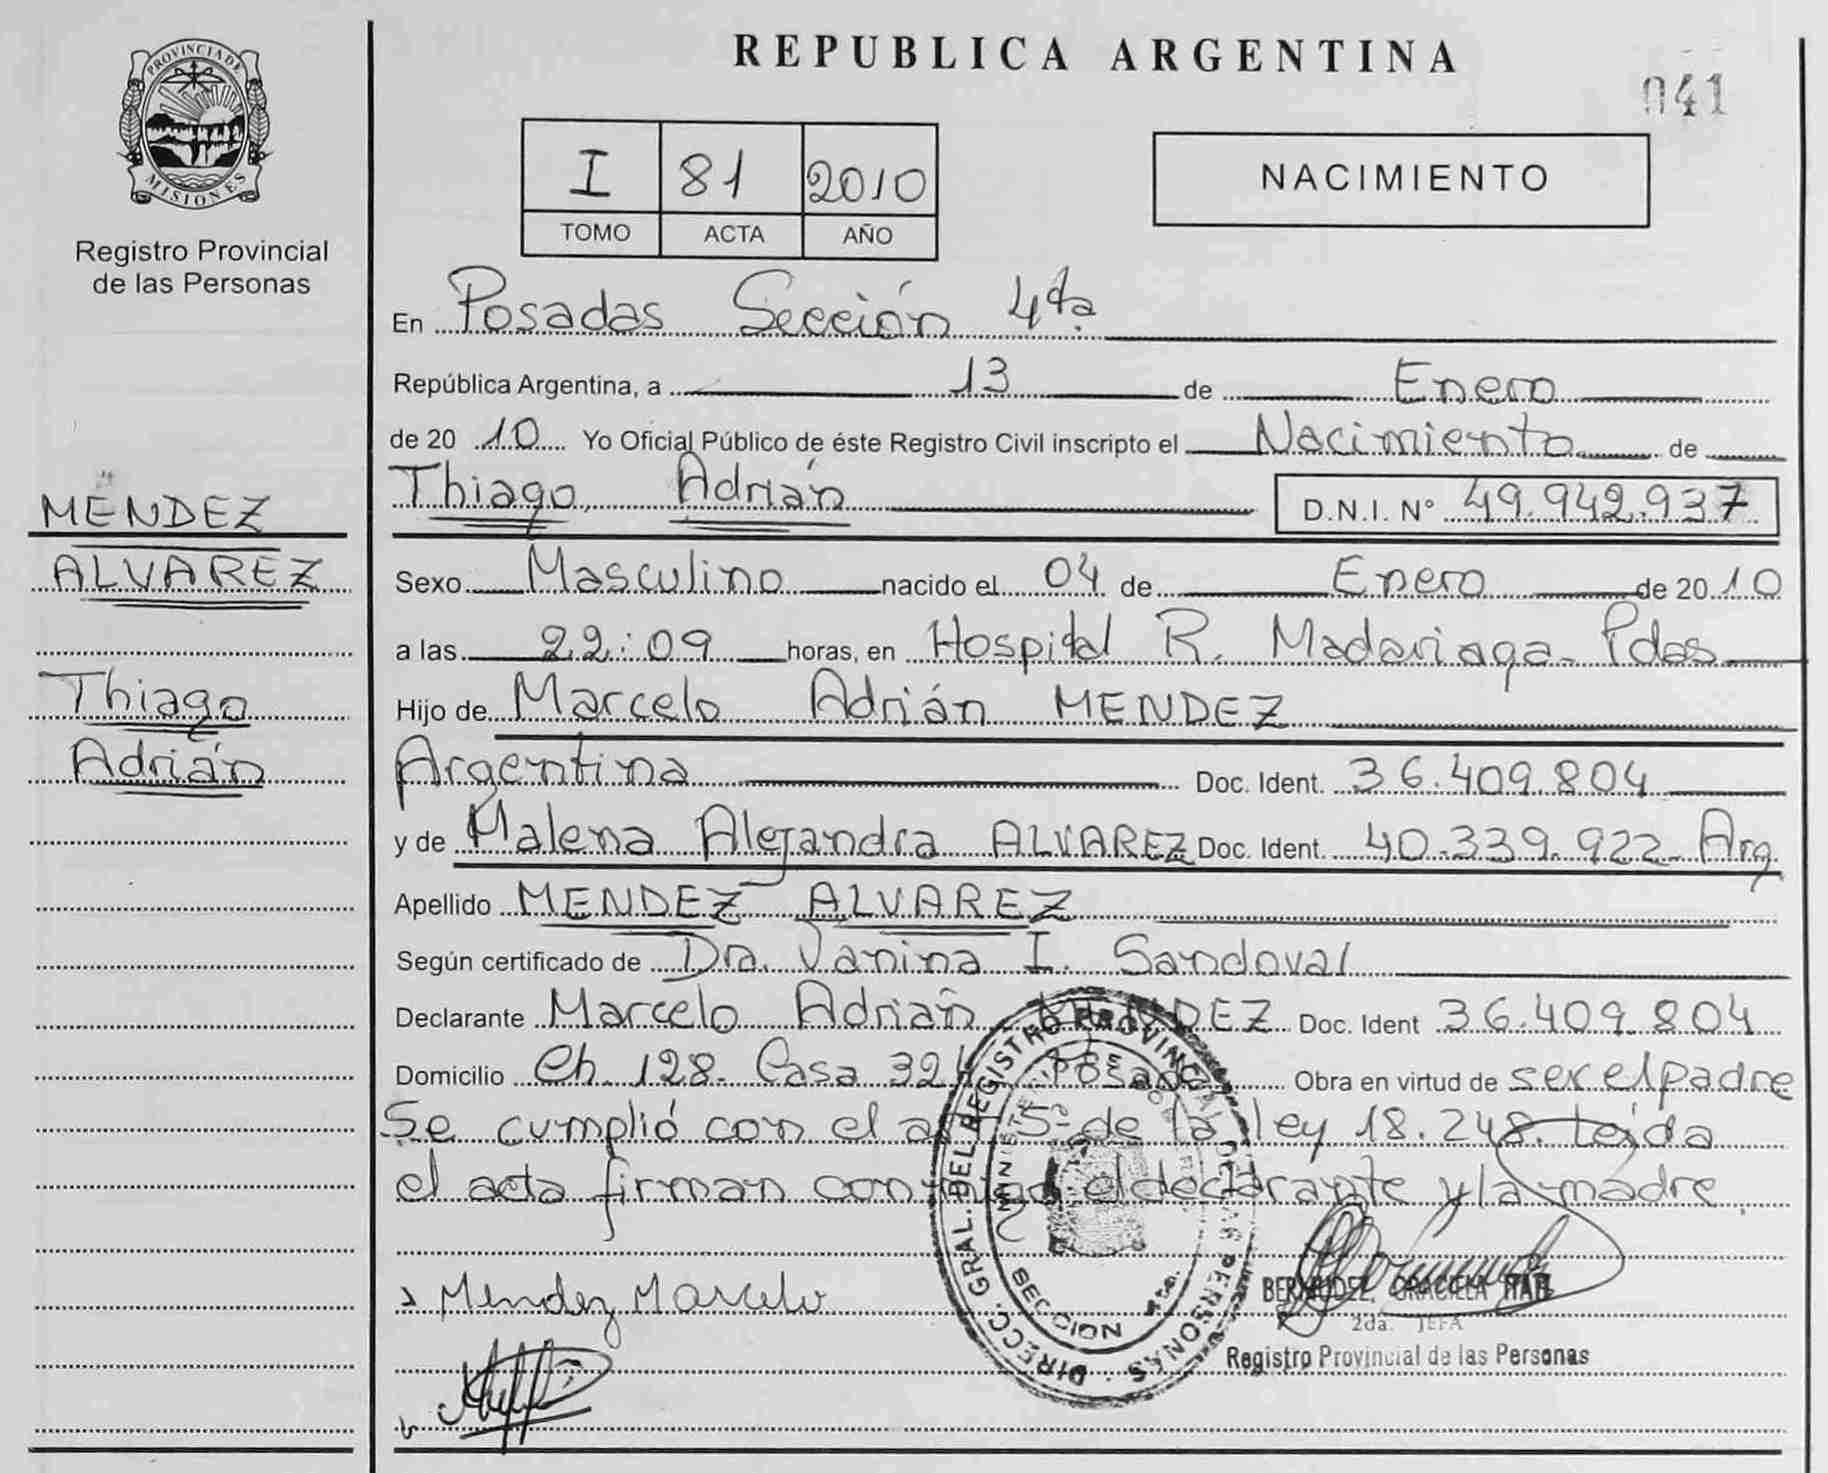 REPUBLICA ARGENTINA
041
PROVINCIA DE
MISIONES
Registro Provincial
de las Personas
I 81 2010
TOMO ACTA AÑO
NACIMIENTO
En Posadas Sección 4ta
República Argentina, a 13 de Enero
de 2010 Yo Oficial Público de éste Registro Civil inscripto el Nacimiento de
Thiago Adrián D.N.I. Nº 49.942.937
MENDEZ
ALVAREZ
Thiago
Adrián
Sexo Masculino nacido el 04 de Enero de 2010
a las 22:09 horas, en Hospital R. Madariaga - Pdas
Hijo de Marcelo Adrián MENDEZ
Argentina Doc. Ident. 36.409.804
y de Malena Alejandra ALVAREZ Doc. Ident. 40.339.922 - Arg
Apellido MENDEZ ALVAREZ
Según certificado de Dra. Vanina I. Sandoval
Declarante Marcelo Adrián MENDEZ Doc. Ident 36.409.804
Domicilio Ch. 128 - Casa 32 Posadas Obra en virtud de ser el padre
Se cumplió con el art 5º de la ley 18.248. Leída
el acta firman conmigo el declarante y la madre
Mendez Marcelo
DIRECC. GRAL. DEL REGISTRO PROVINCIAL DE LAS PERSONAS
SECCION 4ta.
BERMUDEZ, GRACIELA
2da. JEFA
Registro Provincial de las Personas